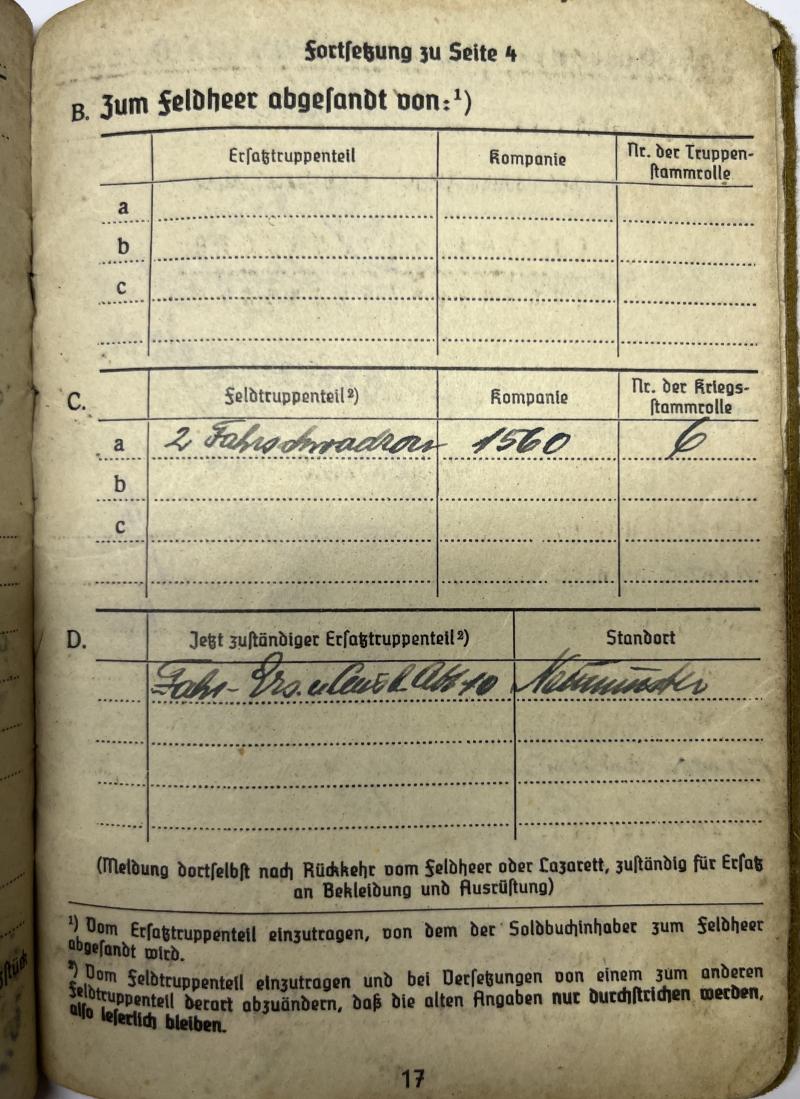 Fortsetzung zu Seite 4
B. Zum Feldheer abgesandt von:¹)
Ersatztruppenteil Kompanie Nr. der Truppen-
stammrolle
a
b
c
C. Feldtruppenteil²) Kompanie Nr. der Kriegs-
stammrolle
a 2 Fahrschwadron 1560 6
b
c
D. Jetzt zuständiger Ersatztruppenteil²) Standort
Fahr-Ers. u. Ausb. Abt 10 Neumünster
(Meldung dortselbst nach Rückkehr vom Feldheer oder Lazarett, zuständig für Ersatz
an Bekleidung und Ausrüstung)
¹) Vom Ersatztruppenteil einzutragen, von dem der Soldbuchinhaber zum Feldheer
abgesandt wird.
²) Vom Feldtruppenteil einzutragen und bei Versetzungen von einem zum anderen
Feldtruppenteil derart abzuändern, daß die alten Angaben nur durchstrichen werden,
also leserlich bleiben.
17